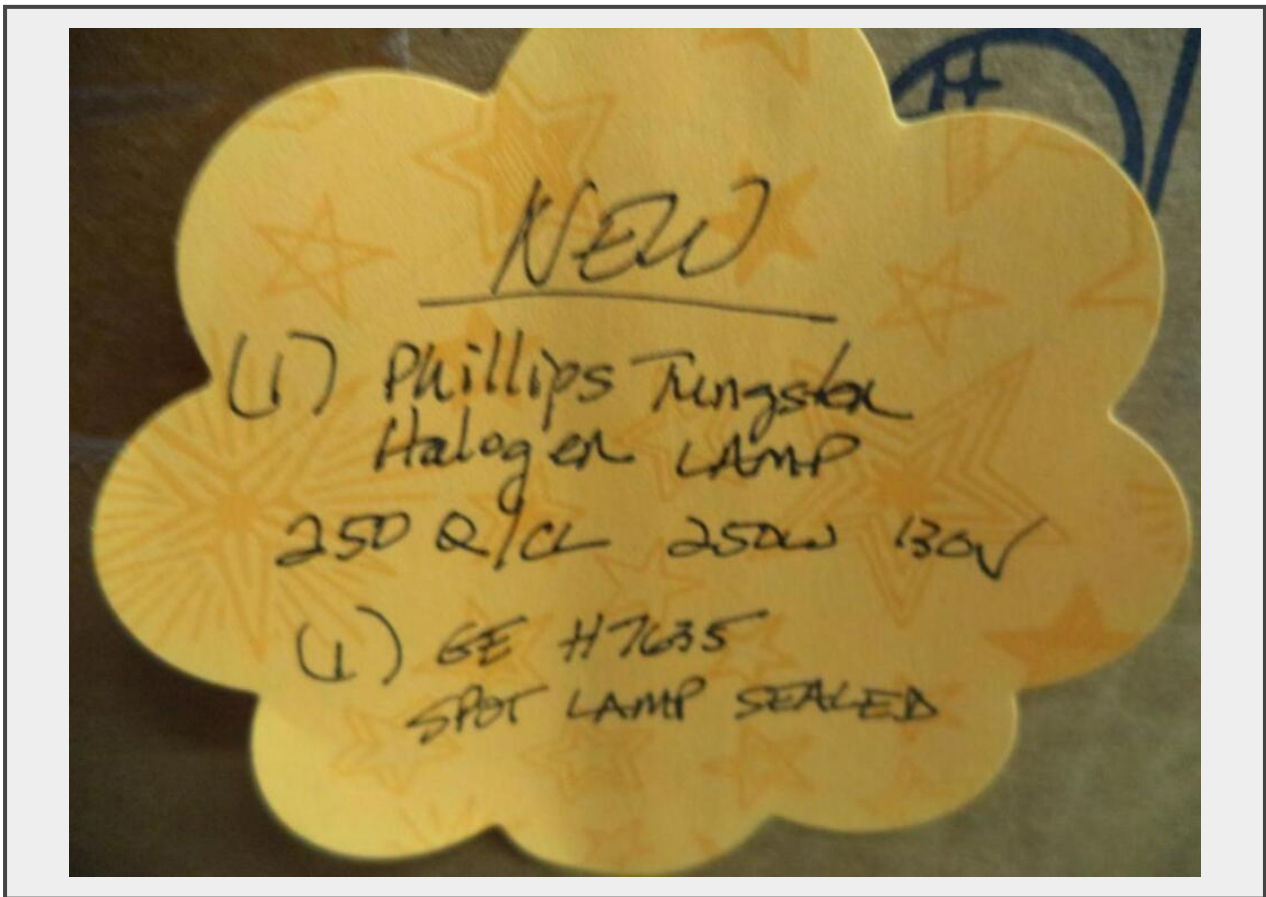 NEW
(1) Phillips Tungsten
Halogen LAMP
250 Q/CL 250W 130V
(1) GE H7635
SPOT LAMP SEALED